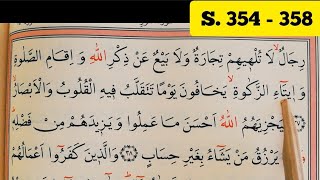 S. 354 - 358
رِجَالٌۙ لَا تُلْهٖيهِمْ تِجَارَةٌ وَلَا بَيْعٌ عَنْ ذِكْرِ اللّٰهِ وَ اِقَامِ الصَّلٰوةِ
وَ اٖيتَٓاءِ الزَّكٰوةِۙ يَخَافُونَ يَوْمًا تَتَقَلَّبُ فٖيهِ الْقُلُوبُ وَالْاَبْصَارُۙ
لِيَجْزِيَهُمُ اللّٰهُ اَحْسَنَ مَا عَمِلُوا وَ يَزٖيدَهُمْ مِنْ فَضْلِهٖ
يَرْزُقُ مَنْ يَشَٓاءُ بِغَيْرِ حِسَابٍ ﴿٣٨﴾ وَالَّذٖينَ كَفَرُٓوا اَعْمَالُهُمْ